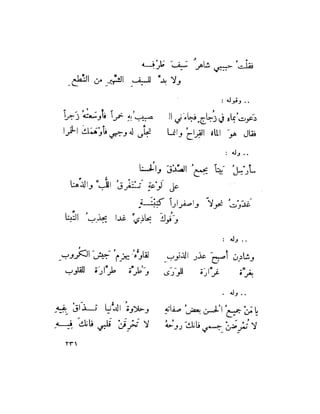 فقلتُ حبيبي شاهرٌ سيفَ طَرْفِه
ولا بدَّ للسيفِ الشهيرِ من النِّطعِ
.. وقوله :
دَعوتُ بماءٍ في زُجاجٍ فجاءني ال صبيبُ بهِ خمراً فأوسَعتُهُ زَجراً
فقال هوَ الماءُ القِراحُ وانما تجلّى له وجهي فأوْهَمَكَ الخمرا
.. وله :
سأرسِلُ بَيتاً يجمعُ الصِّدْقَ والحُسنا
على لَوْعَةٍ تَسْتَغْرِقُ اللُّبَّ والذِّهنا
غدَوْتُ نحولاً واصفراراً كتِبْنَةٍ
وفوكَ بجاذِيٍّ غدا يجذبُ التِّبنا
.. وله :
وشادِنٍ أصبحَ عذرَ الذنوبِ لقاؤهُ يهزِمُ جيشَ الكُروبِ
بغُرَّةٍ غرّارَةٍ للوَرَى وطُرَّةٍ طرّارَةٍ للقلوبِ
.. وله .
يا مَنْ جميعُ الحُسنِ بعضُ صفاتِه وحلاوةُ الدُّنيا تُذاقُ بِفيهِ
لا تُمْرِضَنْ جسمي فانكَ روحُهُ لا تُحْرِقَنْ قلبي فانكَ فيهِ
٢٣١